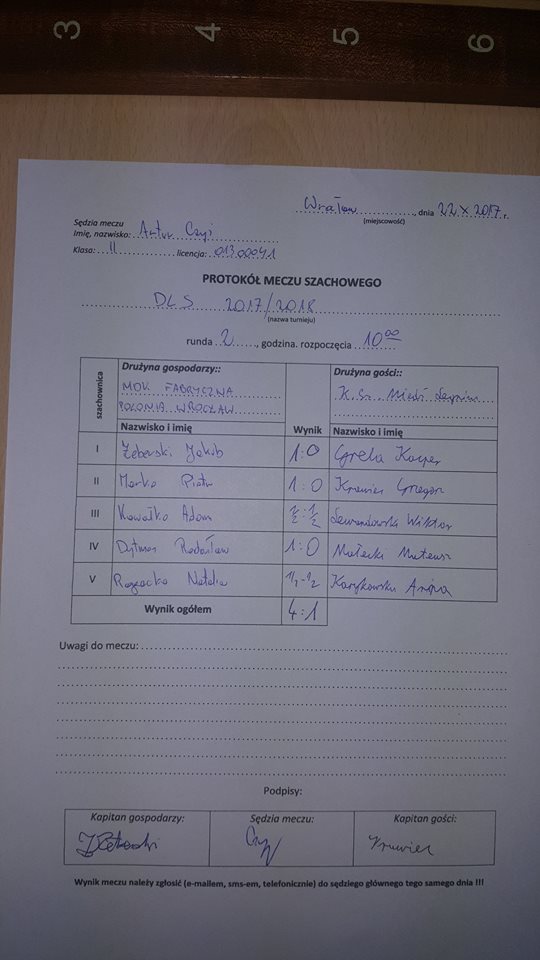 3 4 5 6
Wrocław, dnia 22 X 2017 r.
(miejscowość)
Sędzia meczu
Imię, nazwisko: Artur Czyż
Klasa: II licencja: 01300041
PROTOKÓŁ MECZU SZACHOWEGO
DLS 2017/2018
(nazwa turnieju)
runda 2, godzina. rozpoczęcia 10 00
szachownica
Drużyna gospodarzy:: Drużyna gości::
MDK FABRYCZNA K.Sz. Miedź Legnica
POLONIA WROCŁAW
Nazwisko i imię Wynik Nazwisko i imię
I Żeberski Jakub 1:0 Grela Kacper
II Marko Piotr 1:0 Krawiec Grzegorz
III Kowalko Adam ½:½ Lewandowska Wiktor
IV Dytman Radosław 1:0 Małecki Mateusz
V Natalia ½-½
Wynik ogółem 4:1
Uwagi do meczu:
Podpisy:
Kapitan gospodarzy: Sędzia meczu: Kapitan gości:
Krawiec
Wynik meczu należy zgłosić (e-mailem, sms-em, telefonicznie) do sędziego głównego tego samego dnia !!!